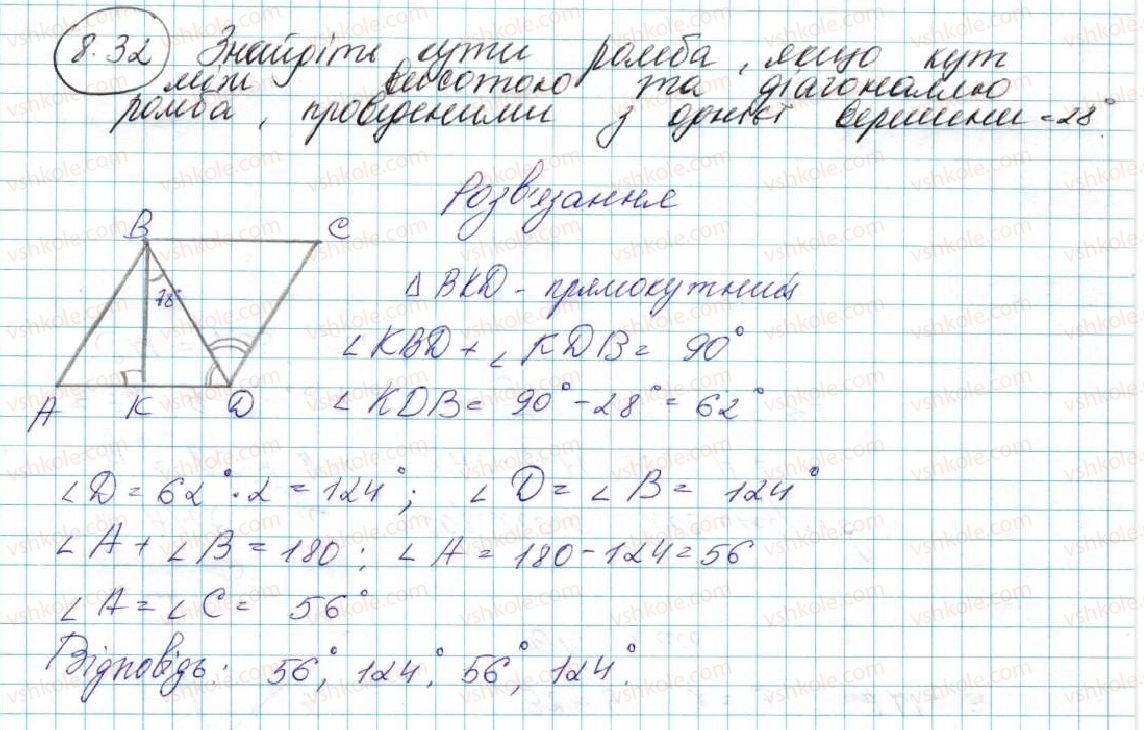 8.32 Знайдіть кути ромба, якщо кут
між висотою та діагоналлю
ромба, проведеними з однієї вершини = 28°.
Розв'язання
B C
28°
A K D
Δ BKD - прямокутний
∠KBD + ∠KDB = 90°
∠KDB = 90° - 28° = 62°
∠D = 62° · 2 = 124°; ∠D = ∠B = 124°
∠A + ∠B = 180; ∠A = 180 - 124 = 56
∠A = ∠C = 56°
Відповідь: 56°, 124°, 56°, 124°.